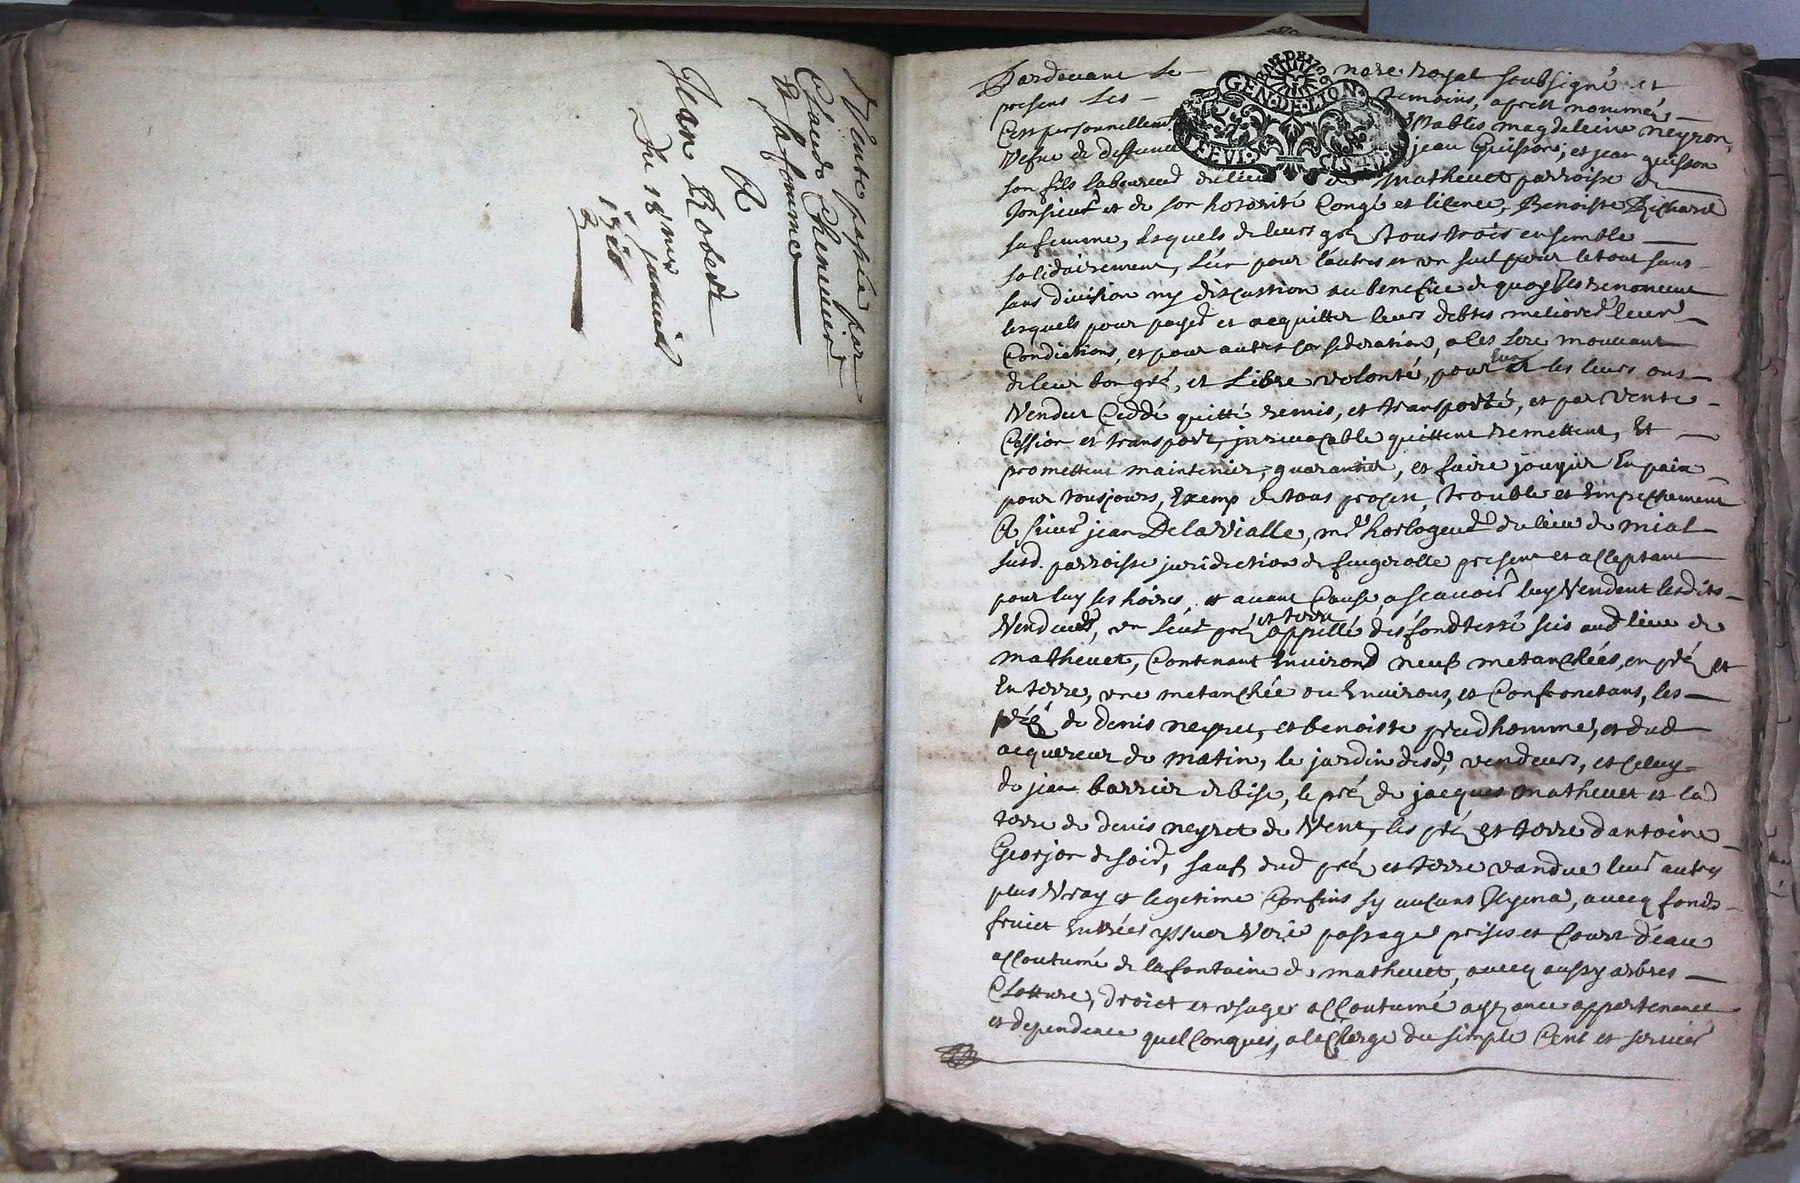 Vente passée par
Claude Chenevier
et sa femme
A
Jean Robert
Du 18 me janvier
GEN·DE·LION
Pardevant le no.re Royal soubsigné et
presens les temoins, apres nommés
C'est personnellement establies magdeleine neyron,
vefve de deffunct jean Guisson, et jean guisson
son fils laboureur du lieu de mathevet parroisse de
Jonsieux et de son hotorité Congé et licence, Benoiste Richard
sa femme, lesquels de leurs gré tous trois ensemble
solidairement, l'un pour l'autre et un seul pour le tout sans
sans division ny discussion au benefice de quoy ils renoncent
lesquels pour payer et acquitter leurs debtes meliorer leur
Condictions, et pour autres considerations, a les ce mouvant
de leur bon gré, et Libre volonté, pour eux et les leurs ont
Vendut Ceddé quitté remis, et transporté, et par vente
Cession et transport, jrrevocable quittent remettent, et
promettent maintenir, guarantir, et faire jouyir En paix
pour tousjours, Exemp de tous proces, trouble et Empechement
A sieur jean Delavialle, m.e horlogeur du lieu de mial
susd. parroisse juridiction de feugerolle present et acceptant
pour luy ses hoires, et ayant Cause, a scavoir luy Vendent lesdits
Vendeurs, un leur pré et terre appellé des fondterre sis aud lieu de
mathevet, Contenant Environs neuf metanchées, en pré et
En terre, une metanchée ou Environs, et Confrontans, les
pré de denis neyret, et benoiste prudhomme, et dud
acquereur de matin, le jardin desd. vendeurs, et celuy
de jean barrier de bise, le pré de jacques mathevet et la
terre de denis neyret de Vent, les pré et terre d'antoine
Georjon de soir, sauf dud pré et terre vandue leur autres
plus Vray et legitime Confins sy aucuns y a, avecq fonds
fruict Entrées yssues Voie passage prises et Court d'eau
accoutumé de la fontaine de mathevet, avecq aussy arbres
Clotture, droict et usages accoutumé ayzance appartenance
et dependence quelconques, a la Charge du simple Cent et servis